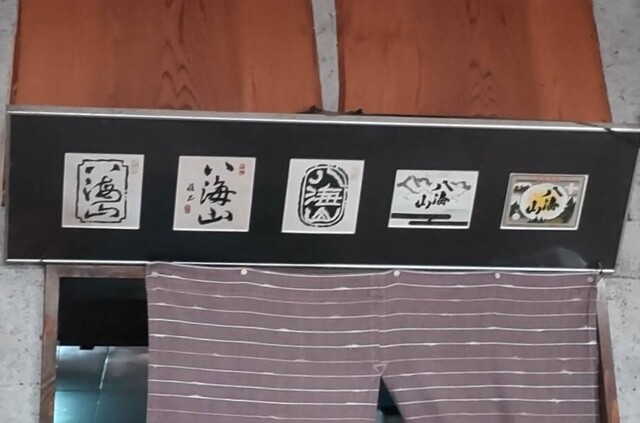 八海山
八海山
八海山
八海山
八海山